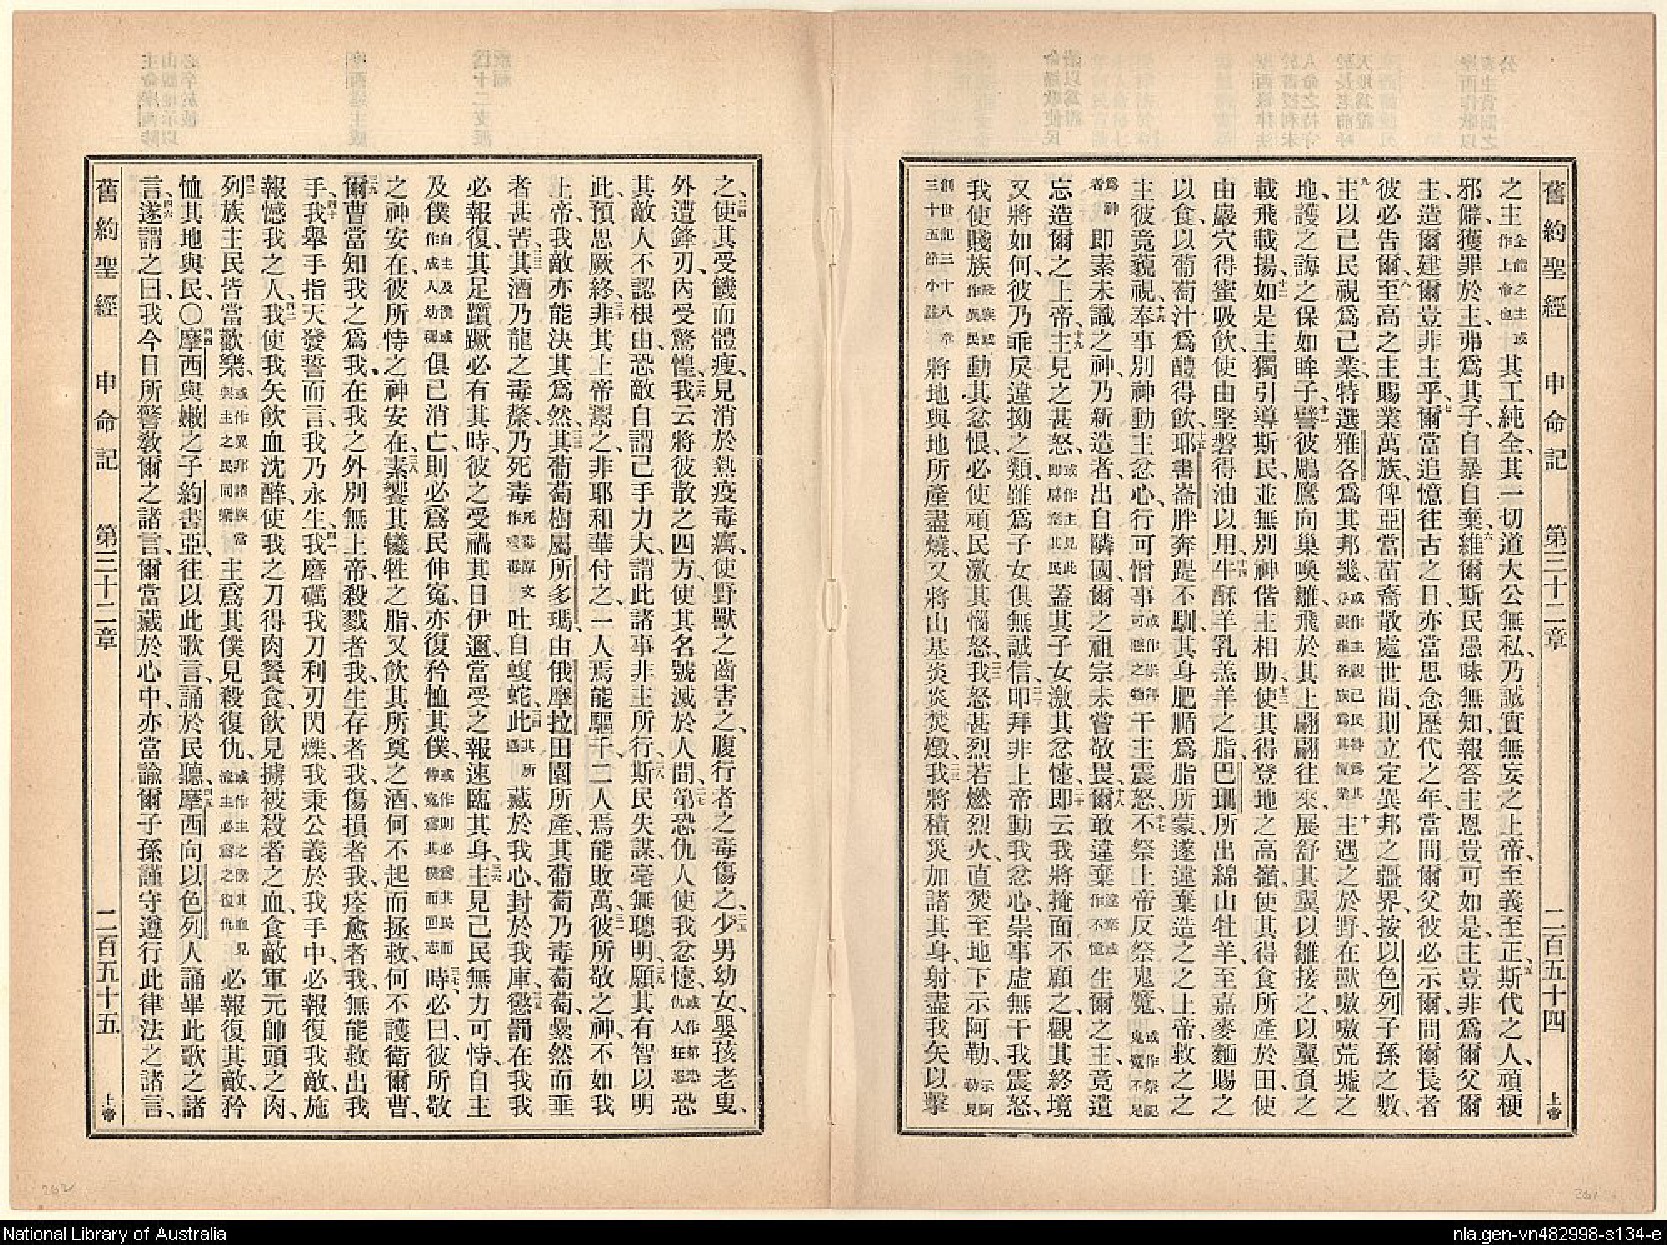 舊約聖經 申命記 第三十二章 二百五十四 上帝
之主全能之主或作上帝也其工純全、其一切道大公無私、乃誠實無妄之上帝、至義至正、五斯代之人、頑梗
邪僻、獲罪於主、弗爲其子、自暴自棄、六維爾斯民、愚昧無知、報答主恩、豈可如是、主豈非爲爾父、爾
主造爾建爾、豈非主乎、七爾當追憶往古之日、亦當思念歷代之年、當問爾父、彼必示爾、問爾長者、
彼必告爾、八至高之主、賜業萬族、俾亞當苗裔、散處世間、則立定異邦之疆界、按以色列子孫之數、
九主以己民視爲己業、特選雅各爲其邦畿、十主遇之於野、在獸嗷嗷荒墟之
地、護之誨之、保如眸子、十一譬彼鵰鷹、向巢喚雛、飛於其上、翩翩往來、展舒其翼、以雛接之、以翼負之、
載飛載揚、十二如是主獨引導斯民、並無別神偕主相助、十三使其得登地之高嶺、使其得食所產於田、使
由巖穴得蜜吸飲、使由堅磐得油以用、十四牛酥羊乳、羔羊之脂、巴珊所出綿山牡羊、至嘉麥麵、賜之
以食、以葡萄汁爲醴得飲、十五耶書崙胖、奔踶不馴、其身肥腯、爲脂所蒙、遂違棄造之之上帝、救之之
主、彼竟藐視、十六奉事別神、動主忿心、行可憎事干主震怒、十七不祭上帝、反祭鬼魔、
爲神者即素未識之神、乃新造者、出自隣國、爾之祖宗未嘗敬畏、十八爾敢違棄違棄或作不憶生爾之主、竟遺
忘造爾之上帝、十九主見之甚怒、蓋其子女激其忿懥、二十即云、我將掩面不顧之、觀其終境
又將如何、彼乃乖戾違拗之類、雖爲子女、俱無誠信、二一叩拜非上帝、動我忿心、崇事虛無、干我震怒、
我使賤族動其忿恨、必使頑民激其惱怒、二二我怒甚烈、若燃烈火、直焚至地下示阿勒、示阿勒見
創世記三十八章三十五節小註將地與地所產盡燒、又將山基炎炎焚燬、二三我將積災加諸其身、射盡我矢以擊
之、二四使其受饑而體瘦、見消於熱疫毒癘、使野獸之齒害之、腹行者之毒傷之、二五少男幼女、嬰孩老叟、
外遭鋒刃、內受驚惶、二六我云將彼散之四方、使其名號滅於人間、二七第恐仇人使我忿懥、恐
其敵人不認根由、恐敵自謂己手力大、謂此諸事、非主所行、二八斯民失謀、毫無聰明、二九願其有智以明
此、預思厥終、三十非其上帝鬻之、非耶和華付之、一人焉能驅千、二人焉能敗萬、三一彼所敬之神、不如我
上帝、我敵亦能決其爲然、三二其葡萄樹屬所多瑪、由俄摩拉田園所產、其葡萄乃毒葡萄、纍然而垂
者甚苦、三三其酒乃龍之毒漦、乃死毒死毒原文作殘毒吐自蝮蛇、三四此藏於我心、封於我庫、三五懲罰在我、我
必報復、其足躓蹶、必有其時、彼之受禍、其日伊邇、當受之報、速臨其身、三六主見己民無力可恃、自主
及僕自主及僕或作成人幼穉俱已消亡、則必爲民伸寃、亦復矜恤其僕、三七時必曰、彼所敬
之神安在、彼所恃之神安在、三八素饗其犧牲之脂、又飲其所奠之酒、何不起而拯救、何不護衛爾曹、
三九爾曹當知我之爲我、在我之外、別無上帝、殺戮者我、生存者我、傷損者我、痊愈者我、無能救出我
手、四十我舉手指天、發誓而言、我乃永生、四一我磨礪我刀、利刃閃爍、我秉公義於我手中、必報復我敵、施
報憾我之人、四二我使我矢飲血沈醉、使我之刀得肉餐食、飲見擄被殺者之血、食敵軍元帥頭之肉、
四三列族主民、皆當歡樂、或作異邦諸族當與主之民同樂主爲其僕見殺復仇、必報復其敵、矜
恤其地與民、〇四四摩西與嫩之子約書亞往、以此歌言、誦於民聽、四五摩西向以色列人誦畢此歌之諸
言、四六遂謂之曰、我今日所警敎爾之諸言、爾當藏於心中、亦當諭爾子孫、謹守遵行此律法之諸言、
舊約聖經 申命記 第三十二章 二百五十五 上帝
262
261
National Library of Australia
nla.gen-vn482998-s134-e